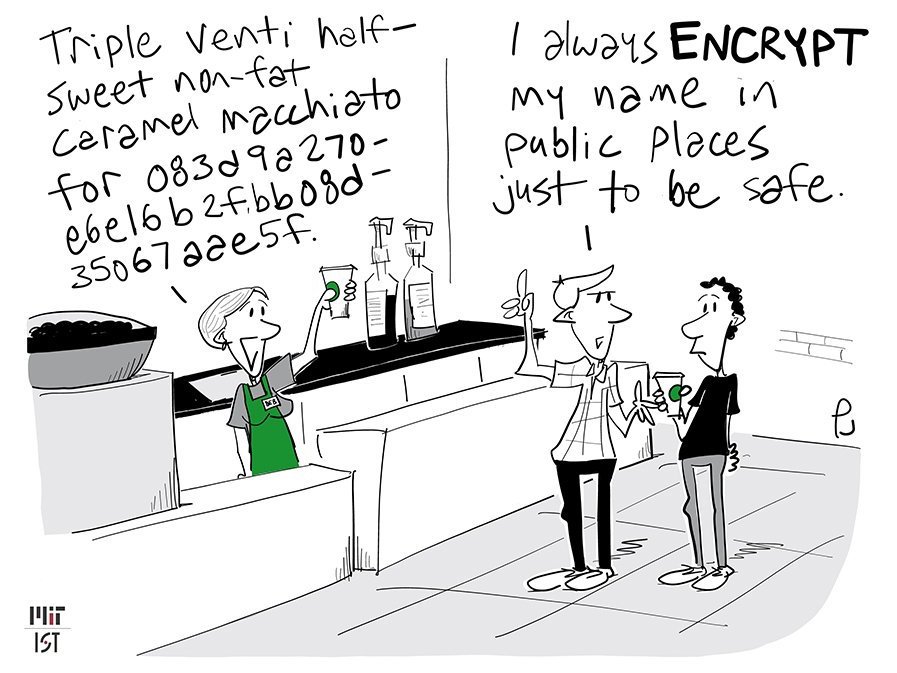 Triple venti half-
sweet non-fat
caramel macchiato
for 083d9a270-
e6e16b2f.bb08d-
35067aae5f.
I always ENCRYPT
my name in
public places
just to be safe.
MIT
IST